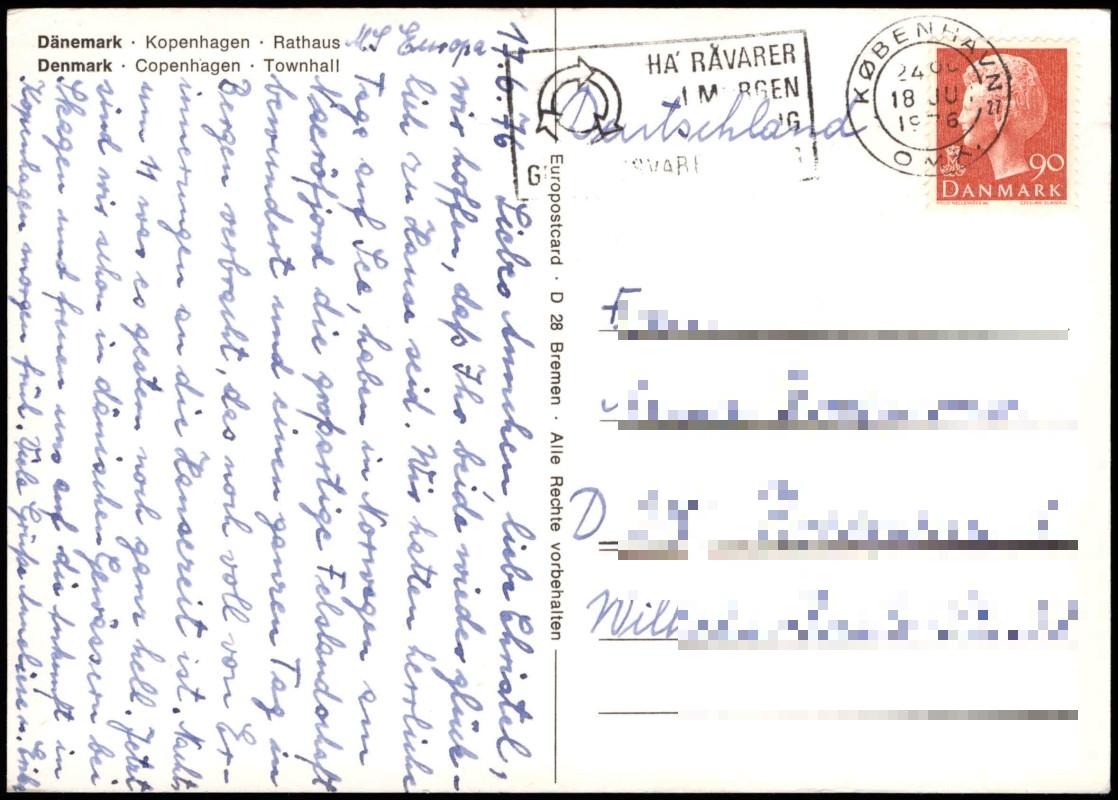 Dänemark · Kopenhagen · Rathaus
Denmark · Copenhagen · Townhall
MS Europa
17.6.76
Liebes Annchen, liebe Christel,
wir hoffen, daß Ihr beide wieder glück-
lich zu Hause seid. Wir hatten herrliche
Tage auf See, haben in Norwegen am
Naeröfjord die großartige Felslandschaft
bewundert und einen ganzen Tag in
Bergen verbracht, das noch voll von Er-
innerungen an die Hansezeit ist. Nachts
um 11 war es gestern noch ganz hell. Jetzt
sind wir schon in dänischen Gewässern bei
Skagen und freuen uns auf die Ankunft in
Kopenhagen morgen früh. Viele Grüße Anneliese u.
Europostcard · D 28 Bremen · Alle Rechte vorbehalten
HA' RÅVARER
I M RGEN
IG
G
SVARE
KØBENHAVN
18 JU
1976
OMK.
27
90
DANMARK
Deutschland
F
D
Will